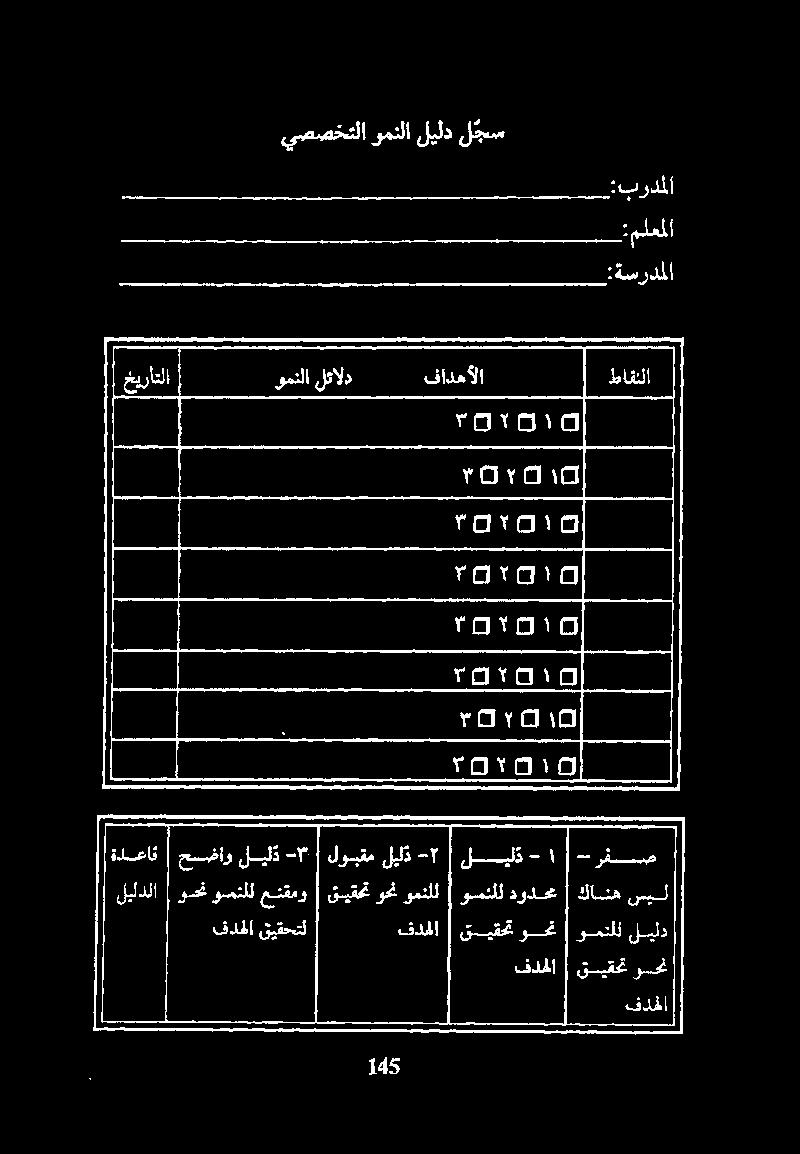 سجّل دليل النمو التخصصي
المدرب:
المعلم:
المدرسة:
النقاط الأهداف دلائل النمو التأريخ
□ ١ □ ٢ □ ٣
□ ١ □ ٢ □ ٣
□ ١ □ ٢ □ ٣
□ ١ □ ٢ □ ٣
□ ١ □ ٢ □ ٣
□ ١ □ ٢ □ ٣
□ ١ □ ٢ □ ٣
□ ١ □ ٢ □ ٣
صفر –
ليس هناك
دليل للنمو
نحو تحقيق
الهدف
١ - دليل
محدود للنمو
نحو تحقيق
الهدف
٢- دليل مقبول
للنمو نحو تحقيق
الهدف
٣- دليل واضح
ومقنع للنمو نحو
لتحقيق الهدف
قاعدة
الدليل
145